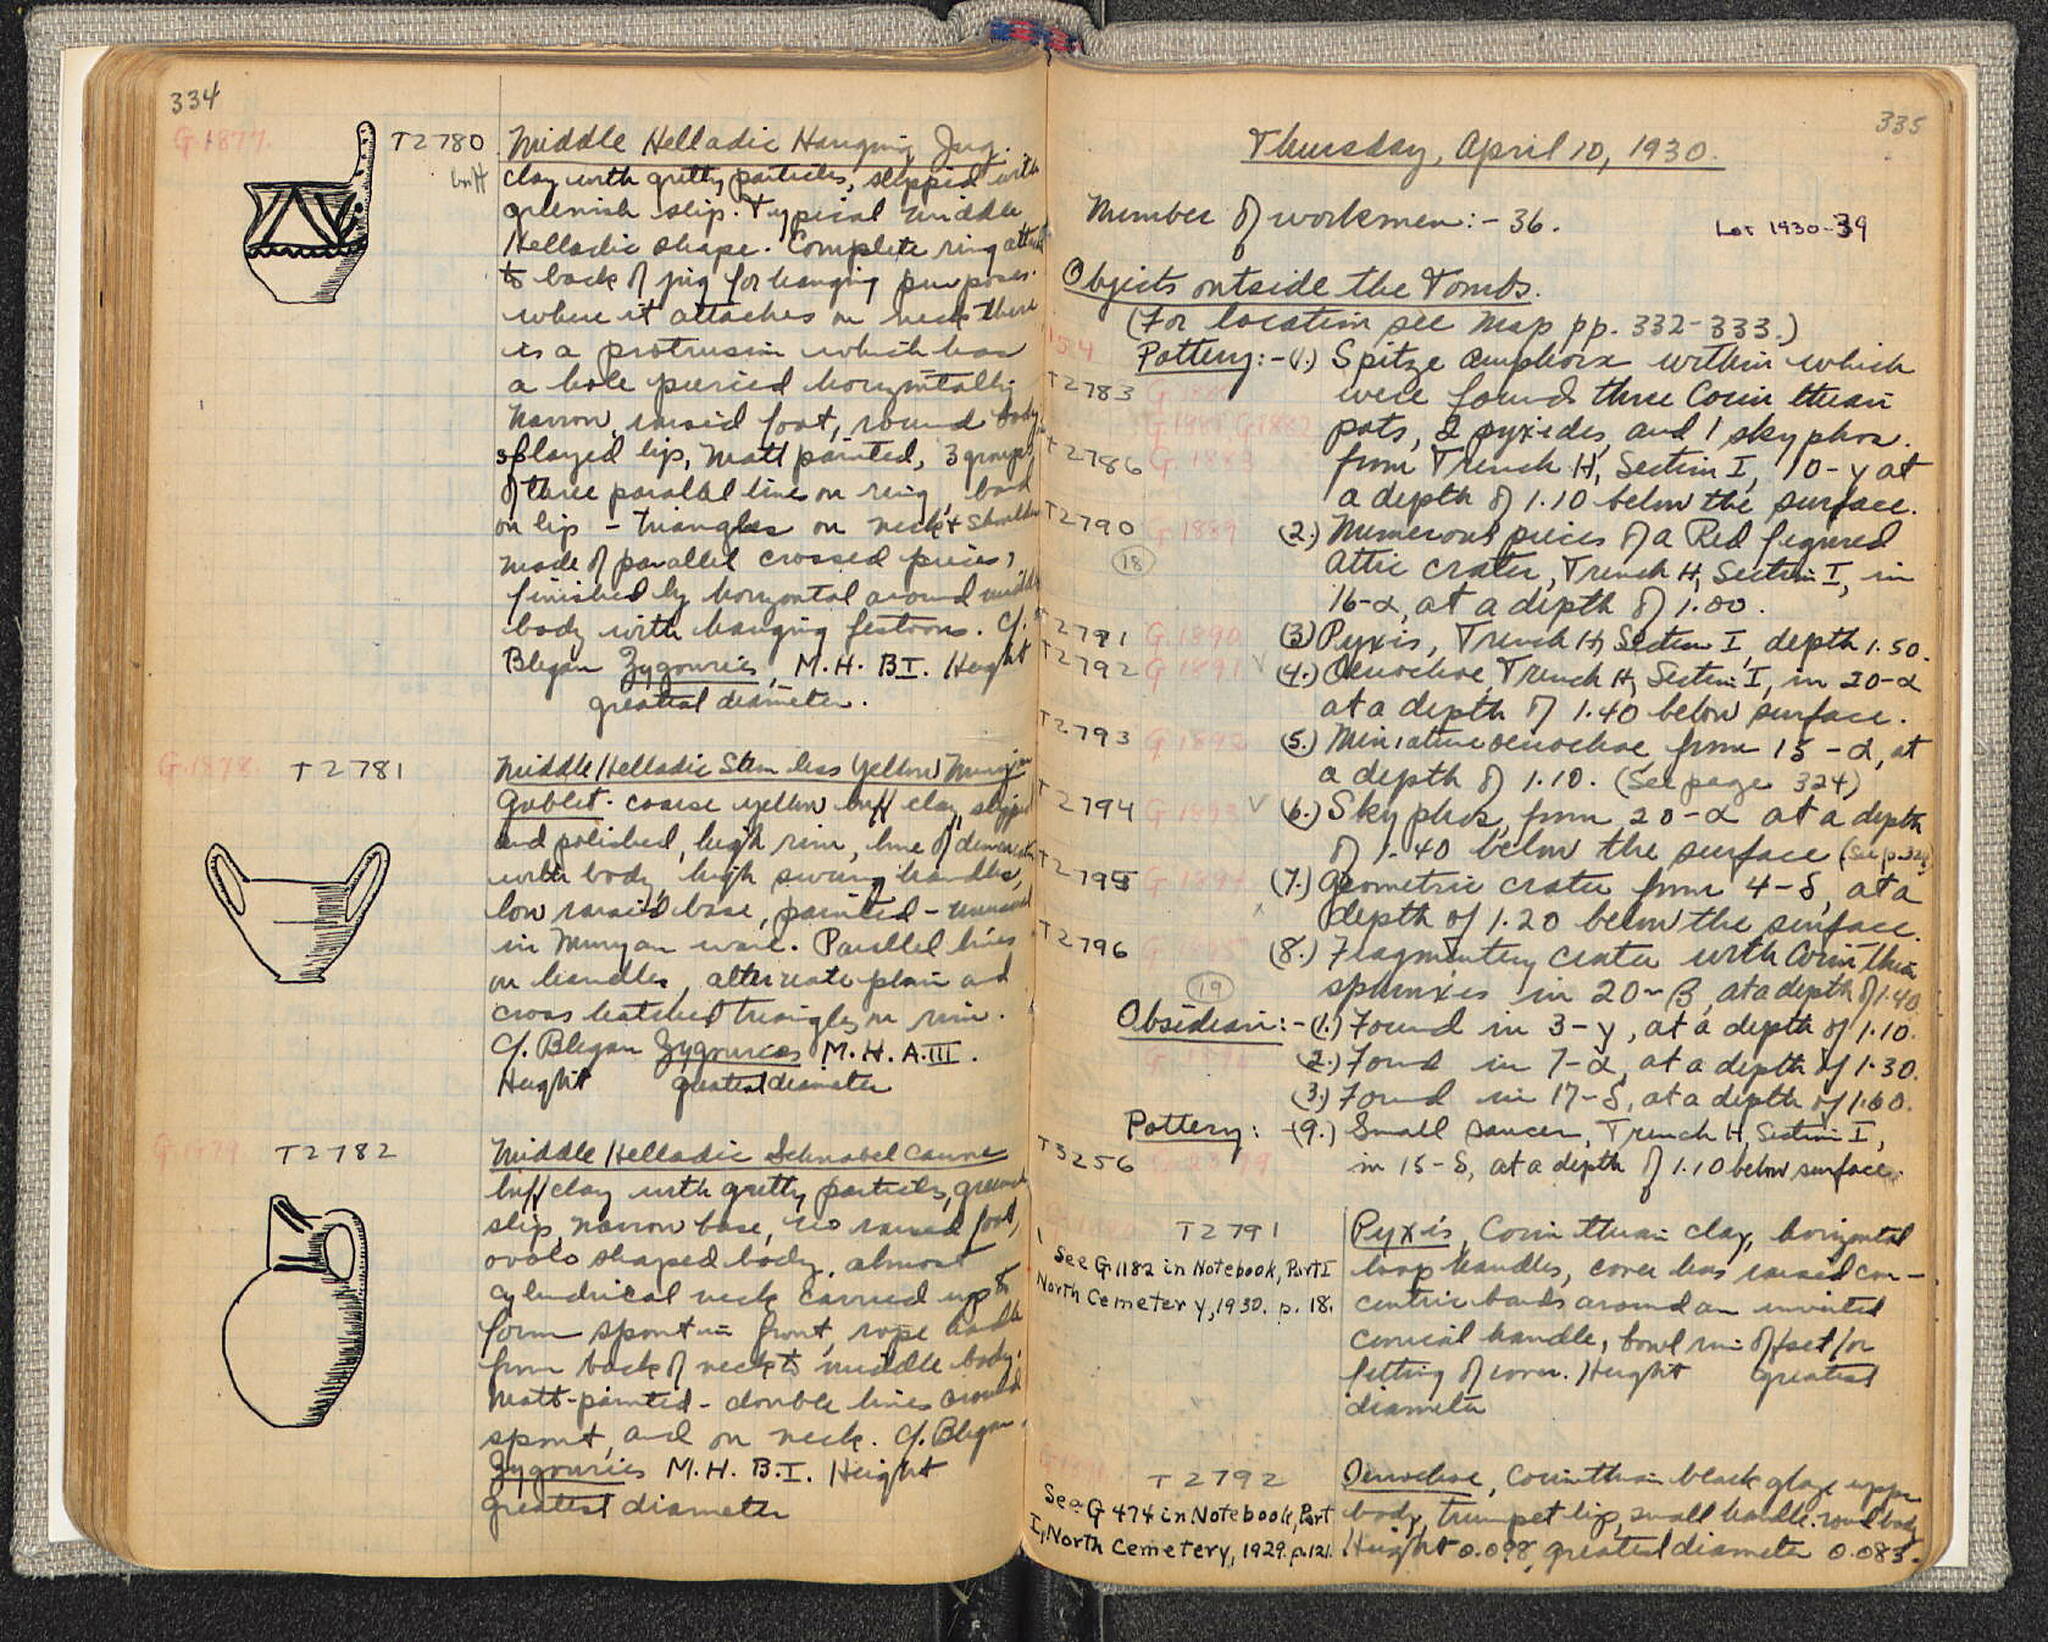 334
G 1877.
T2780
Middle Helladic Hanging Jug.
buff
clay with gritty particles, slipped with
greenish slip. Typical middle
Helladic shape. Complete ring
to back of jug for hanging purposes.
where it attaches on neck there
is a protrusion which has
a hole pierced horizontally
Narrow, raised foot, round body,
splayed lip, Matt painted, 3 groups
of three parallel lines on ring, band
on lip - triangles on neck + shoulder
made of parallel crossed pieces,
finished by horizontal around middle
body with hanging festoons. Cf.
Blegen Zygouries, M.H. BI. Height
greatest diameter.
G.1878.
T2781
Middle Helladic Stemless Yellow Minyan
Goblet. coarse yellow buff clay, slipped
and polished, high rim, line of
with body, high swung handles,
low raised base, painted - unusual
in Minyan ware. Parallel lines
on handles, alternate plain and
cross hatched triangles on rim.
Cf. Blegen Zygouries M.H. A.III.
Height greatest diameter
G.1879
T2782
Middle Helladic Schnabel Canne
buff clay with gritty particles, greenish
slip, narrow base, no raised foot,
ovolo shaped body, almost
cylindrical neck carried up to
form spout in front, rope handle
from back of neck to middle body.
Matt-painted - double lines around
spout, and on neck. Cf. Blegen
Zygouries M.H. B.I. Height
greatest diameter
335
Thursday, April 10, 1930.
Number of workmen:- 36.
Lot 1930-39
Objects outside the Tombs.
(For location see Map pp. 332-333.)
Pottery:- (1.) Spitze amphora within which
T2783
were found three Corinthian
pots, 2 pyxides, and 1 skyphos.
T2786 G.1883
from Trench H, Section I, 10-y at
a depth of 1.10 below the surface.
T2790 G.1889
(2.) Numerous pieces of a Red figured
18
Attic crater, Trench H, Section I, in
16-α, at a depth of 1.00.
T2791 G.1890
(3.) Pyxis, Trench H, Section I, depth 1.50.
T2792 G.1891 V
(4.) Oenochoe, Trench H, Section I, in 20-α
at a depth of 1.40 below surface.
T2793 G.1892
(5.) Miniature oenochoe, from 15-α, at
a depth of 1.10. (See page 324)
T2794 G.1893 V
(6.) Skyphos, from 20-α at a depth
of 1.40 below the surface
T2795 G.1894
(7.) Geometric crater from 4-δ, at a
depth of 1.20 below the surface.
T2796
(8.) Fragmentary crater with Corinthian
sphinxes in 20-β, at a depth of 1.40.
19
Obsidian:- (1.) Found in 3-y, at a depth of 1.10.
(2.) Found in 7-α, at a depth of 1.30.
(3.) Found in 17-δ, at a depth of 1.60.
Pottery: - (9.) Small saucer, Trench H, Section I,
T3256
in 15-δ, at a depth of 1.10 below surface.
T2791
See G1182 in Notebook, Part I
North Cemetery, 1930. p. 18.
Pyxis, Corinthian clay, horizontal
loop handles, cover has raised con-
centric bands around an inverted
conical handle, bowl rim offset for
fitting of cover. Height greatest
diameter
T2792
See G 474 in Notebook, Part
I, North Cemetery, 1929. p.121.
Oenochoe, Corinthian black glaze upper
body, trumpet lip, small handle, round body
Height 0.098, greatest diameter 0.083.